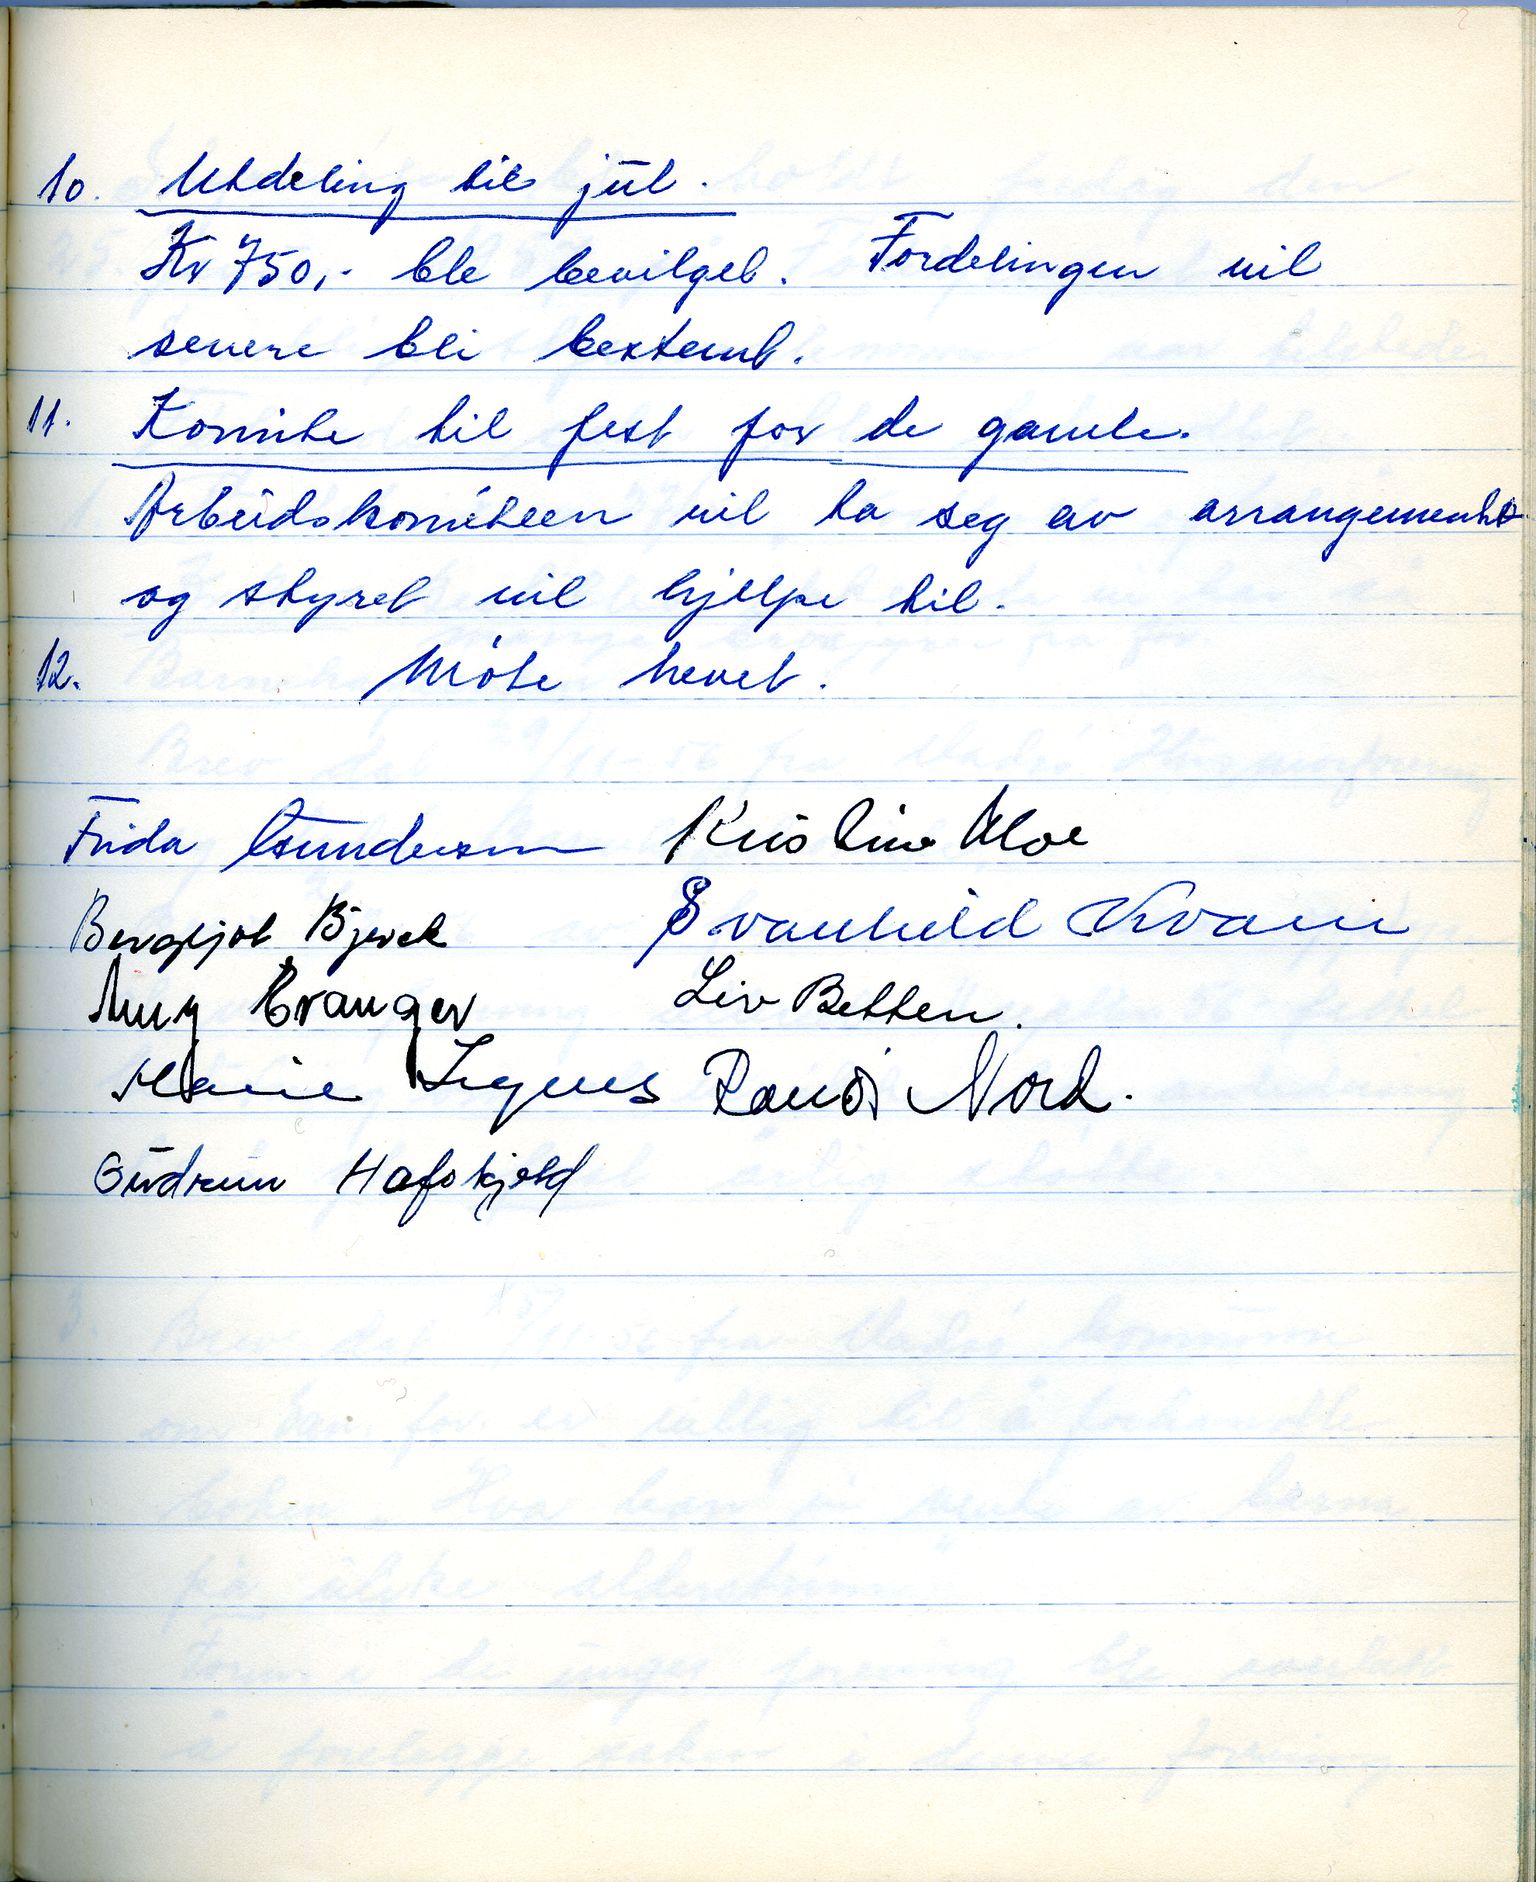 10. Utdeling til jul.
Kr 750,- ble bevilget. Fordelingen vil
senere bli bestemt.
11. Komite til fest for de gamle.
Arbeidskomiteen vil ta seg av arrangementet
og styret vil hjelpe til.
12. Møte hevet.
Frida Gundersen Kristine Moe
Bergljot Bjerck Svanhild Kvam
Amy Granger Liv Betten.
Marie Randi Nord.
Gudrun Hafskjold